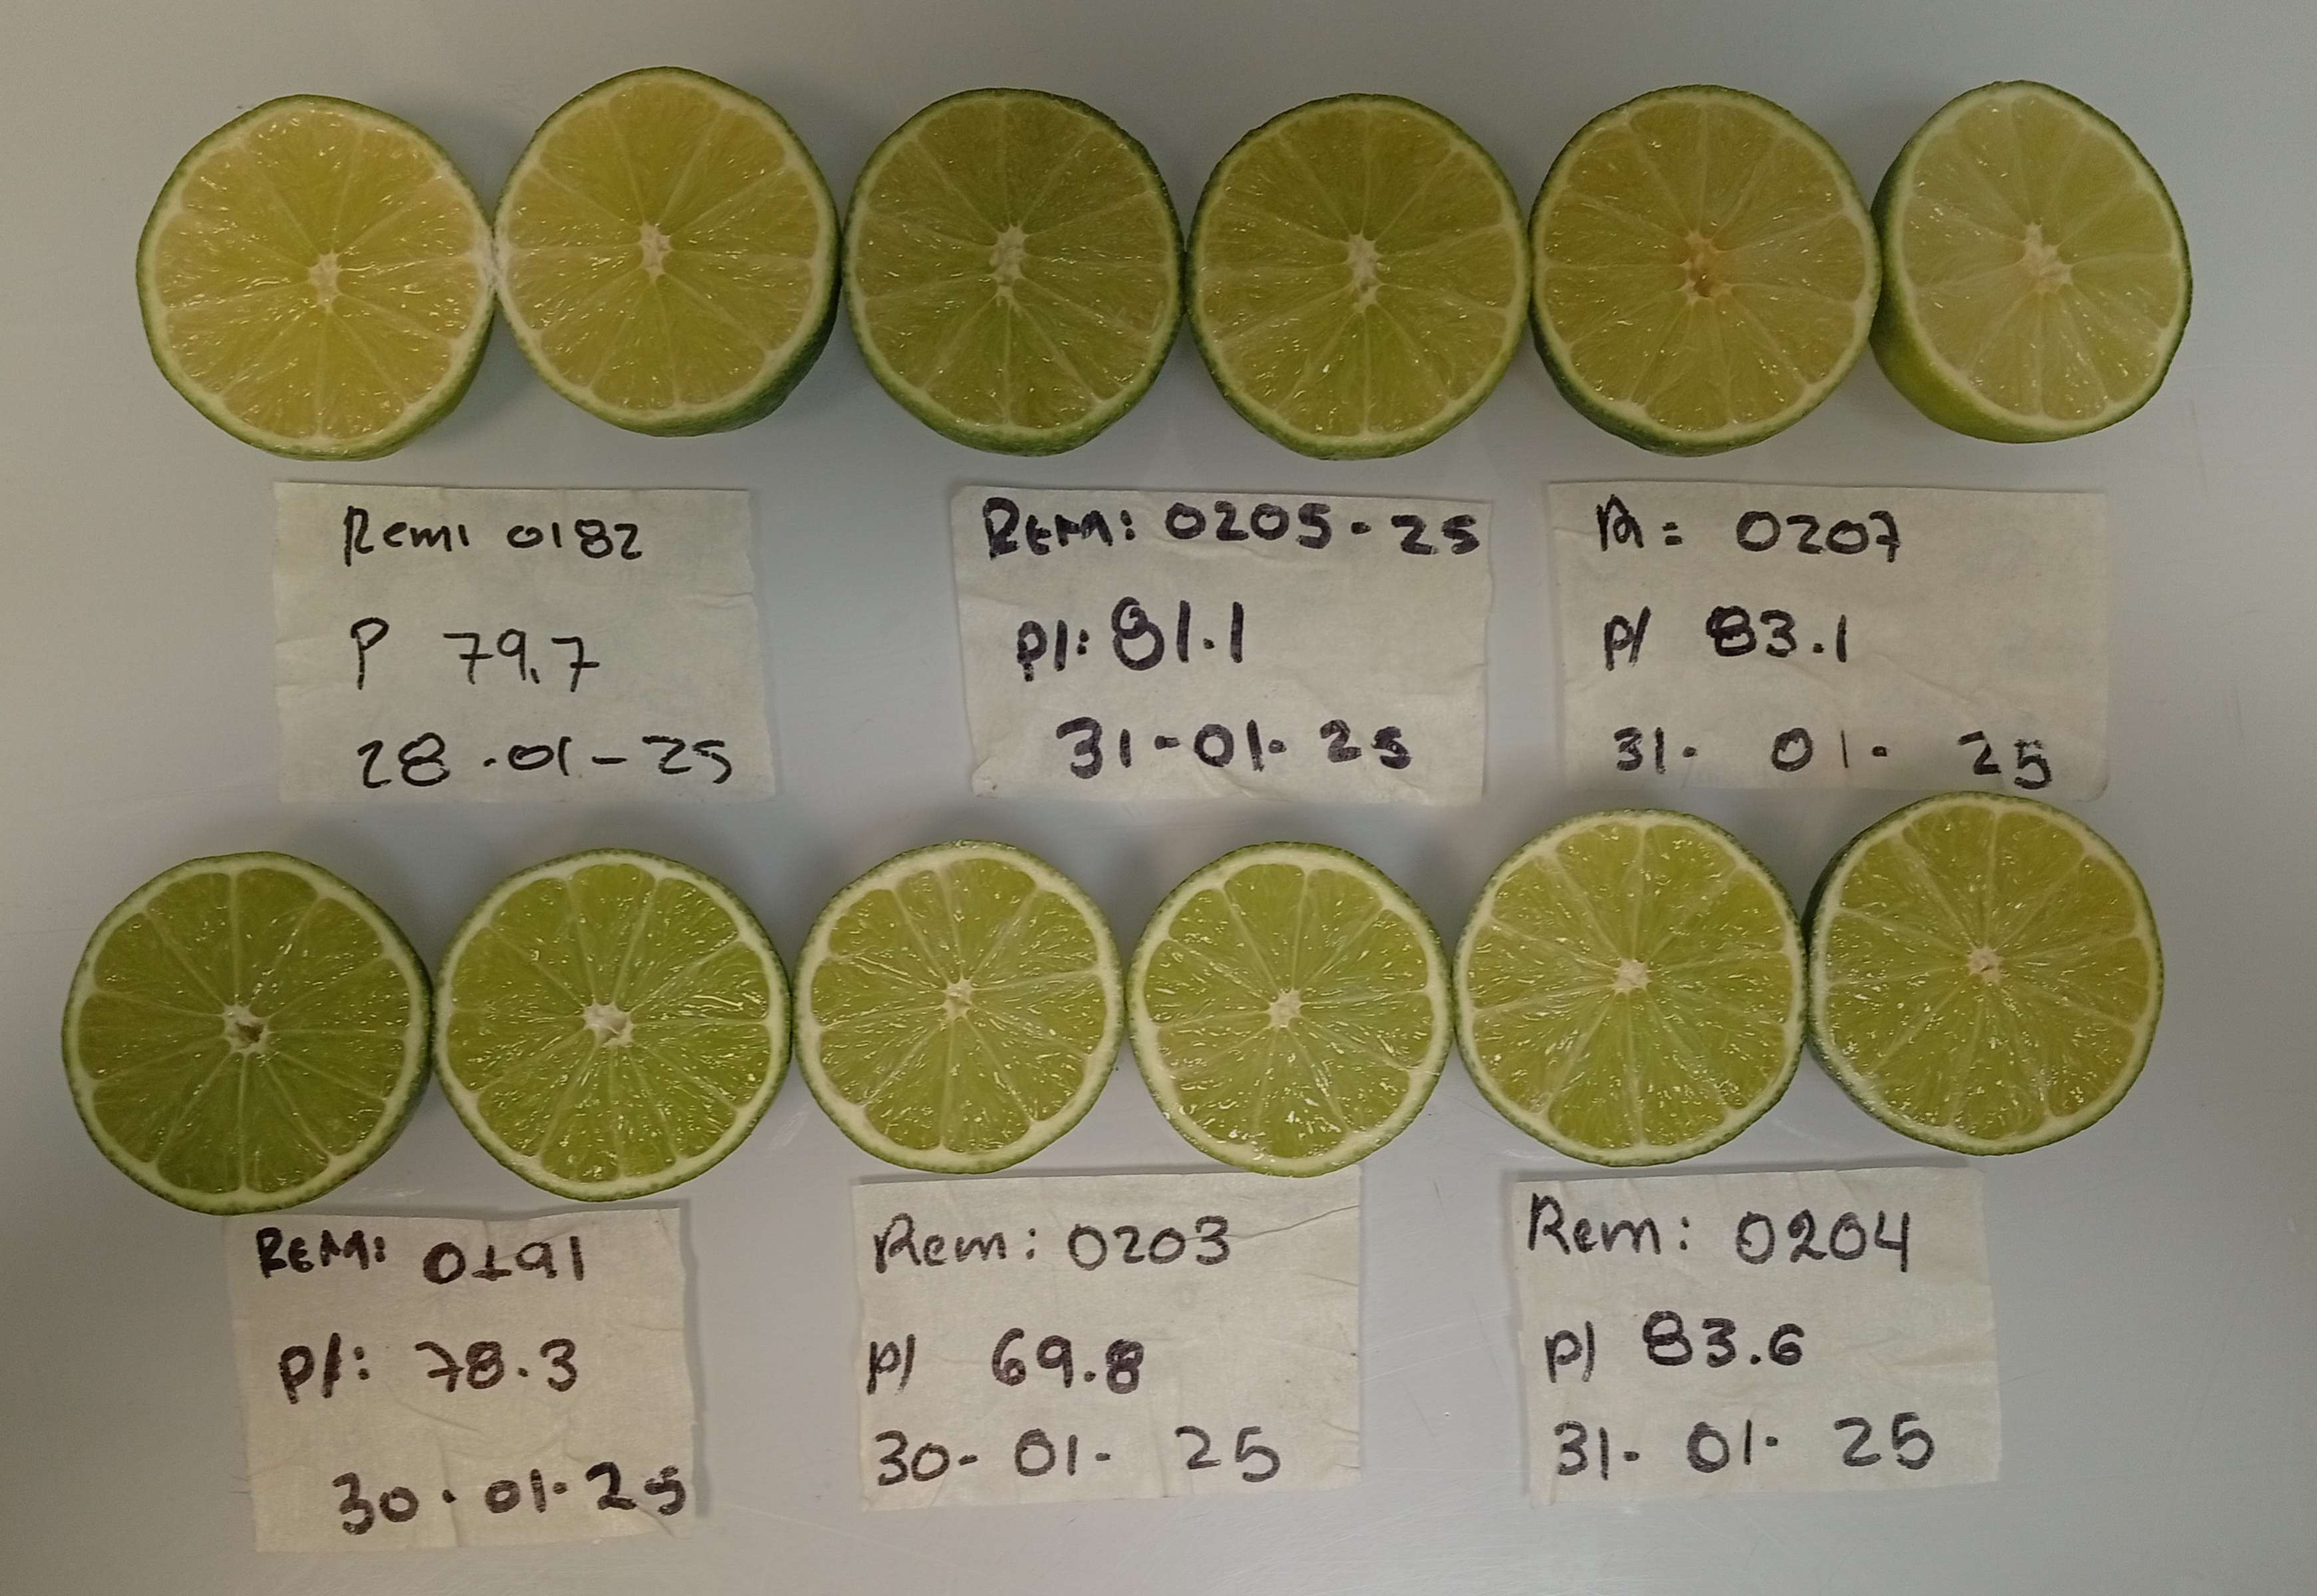 Rem: 0182
P 79.7
28.01-25
REM: 0205-25
P/: 81.1
31-01-25
R: 0207
P/ 83.1
31. 01. 25
REM: 0191
P/: 78.3
30.01.25
Rem: 0203
P/ 69.8
30-01-25
Rem: 0204
P/ 83.6
31-01-25